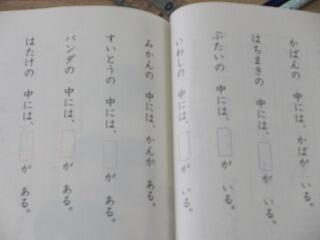 かばんの 中には、かばが いる。
はちまきの 中には、 が いる。
ぶたいの 中には、 が いる。
いわしの 中には、 が いる。
みかんの 中には、かんが ある。
すいとうの 中には、 が ある。
パンダの 中には、 が ある。
はたけの 中には、 が ある。